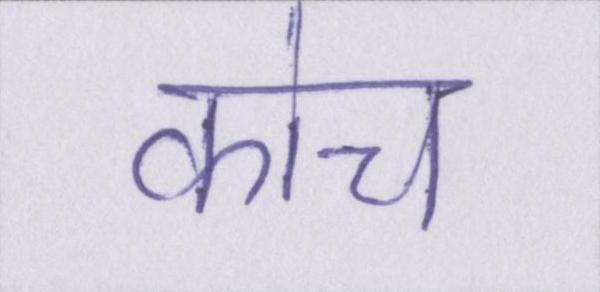 कोच